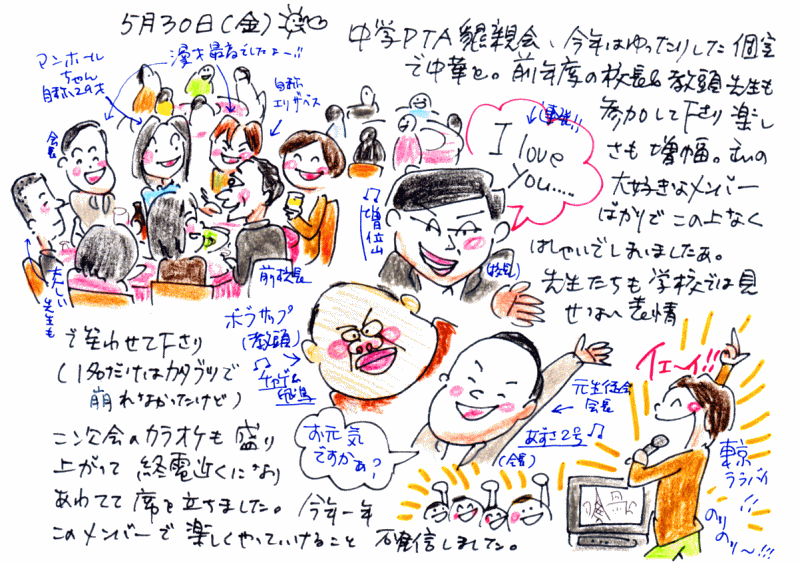 5月30日(金)
中学PTA懇親会、今年はゆったりした個室
で中華を。前年度の校長&教頭先生も
参加して下さり楽し
さも増幅。私の
大好きなメンバー
ばかりでこの上なく
はしゃいでしまいましたぁ。
先生たちも学校では見
せない表情
で笑わせて下さり
(1名だけはカタブツで
崩れなかったけど)
二次会のカラオケも盛り
上がって終電近くになり
あわてて席を立ちました。今年一年
このメンバーで楽しくやっていけること確信しました。
マンホール
ちゃん
自称29才
濃さ最高でしたよー!!
自称
エリザベス
会長
おとなしい
先生も
前校長
I love
you....
♫増位山
(校長)
ボブサップ
(教頭)
♫
お元気
ですかぁ?
元生徒会
会長
あずさ2号♫
(会長)
イェーイ!!
東京
ララバイ
!!
のり
のり〜!!!